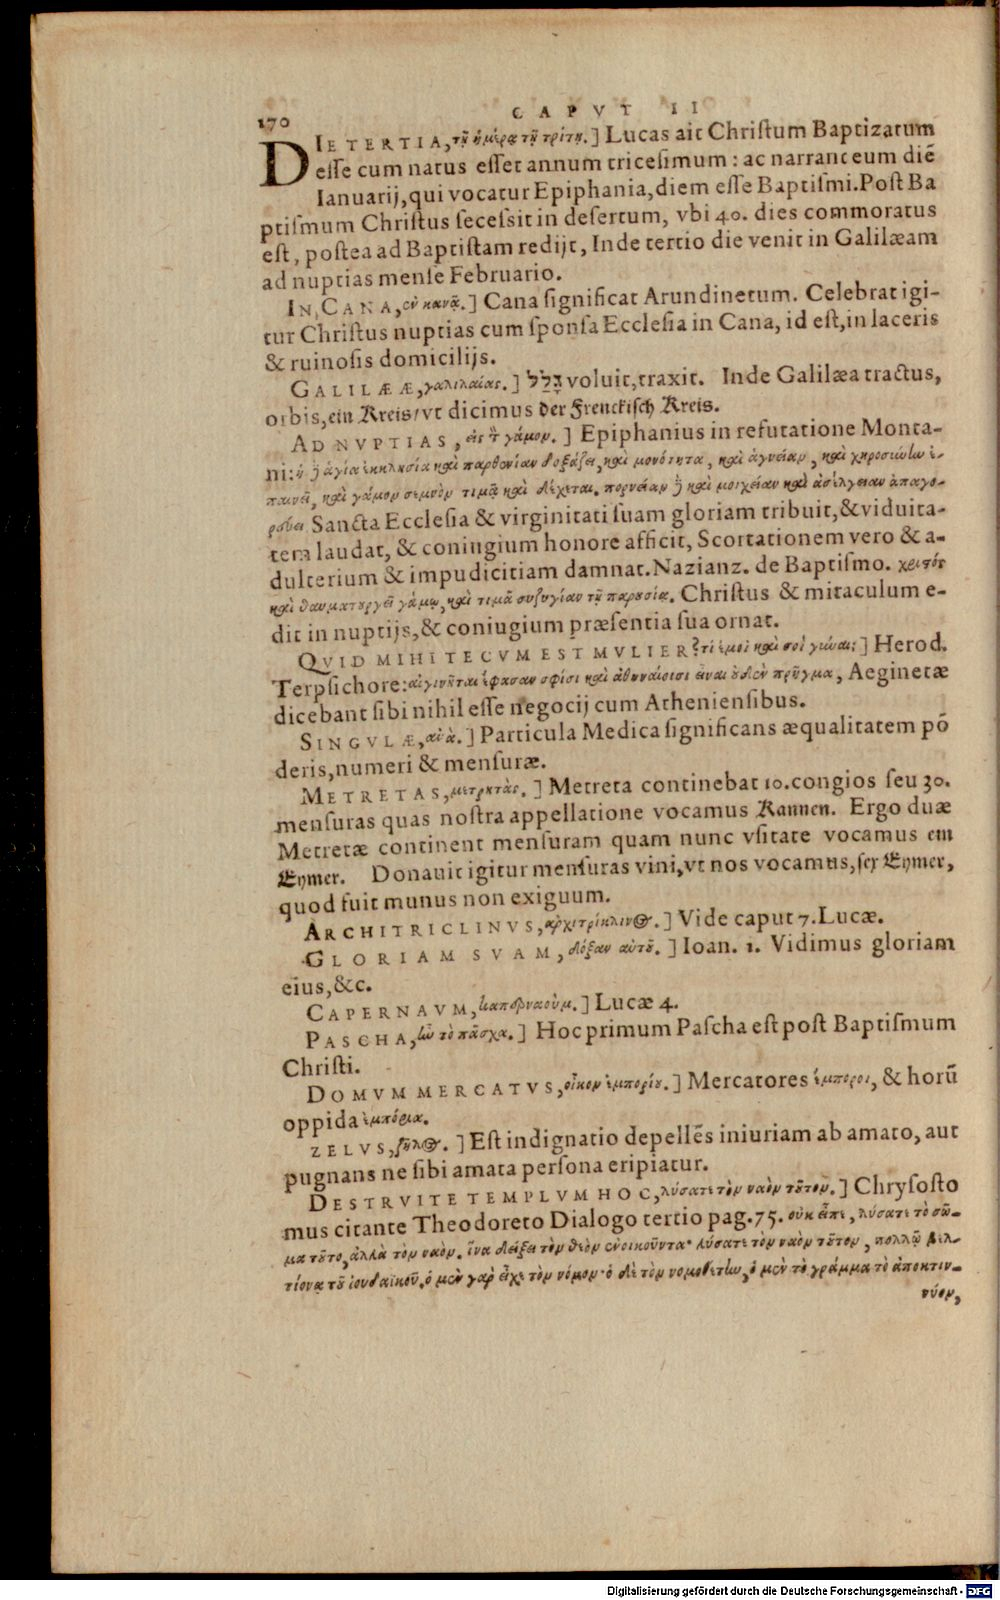 170
CAPVT II
DIE TERTIA, τῇ ἡμέρᾳ τῇ τρίτῃ.] Lucas ait Christum Baptizatum
esse cum natus esset annum tricesimum: ac narrant eum diē
Ianuarij, qui vocatur Epiphania, diem esse Baptismi. Post Ba
ptismum Christus secessit in desertum, vbi 40. dies commoratus
est, postea ad Baptistam redijt, Inde tertio die venit in Galilæam
ad nuptias mense Februario.
IN CANA, ἐν κανᾷ.] Cana significat Arundinetum. Celebrat igi-
tur Christus nuptias cum sponsa Ecclesia in Cana, id est, in laceris
& ruinosis domicilijs.
GALILÆÆ, γαλιλαίας.] גלל voluit, traxit. Inde Galilæa tractus,
orbis, ein Kreis/ vt dicimus der Frenckisch Kreis.
AD NVPTIAS, εἰς τ̀ γάμον.] Epiphanius in refutatione Monta-
ni: ἡ ἢ ἁγία ἐκκλησία καὶ παρθενίαν δοξάζει, καὶ μονότητα, καὶ ἁγνείαν, καὶ χηροσύνην ἐ-
παινεῖ, καὶ γάμον σεμνὸν τιμᾷ καὶ δέχεται. πορνείαν ἢ καὶ μοιχείαν καὶ ἀσέλγειαν ἀπαγο-
ρεύει. Sancta Ecclesia & virginitati suam gloriam tribuit, & viduita-
tem laudat, & coniugium honore afficit, Scortationem vero & a-
dulterium & impudicitiam damnat. Nazianz. de Baptismo. χριστὸς
καὶ θαυματουργεῖ γάμῳ, καὶ τιμᾷ συζυγίαν τῇ παρουσίᾳ. Christus & miraculum e-
dit in nuptijs, & coniugium præsentia sua ornat.
QVID MIHI TECVM EST MVLIER? τί ἐμοὶ καὶ σοὶ γύναι;] Herod.
Terpsichore: αἰγινῆται ἔφασαν σφίσι καὶ ἀθηναίοισι εἶναι οὐδὲν πρῆγμα, Aeginetæ
dicebant sibi nihil esse negocij cum Atheniensibus.
SINGVLÆ, ἀνὰ.] Particula Medica significans æqualitatem pō
deris, numeri & mensuræ.
METRETAS, μετρητὰς.] Metreta continebat 10. congios seu 30.
mensuras quas nostra appellatione vocamus Kannen. Ergo duæ
Metretæ continent mensuram quam nunc vsitate vocamus ein
Eymer. Donauit igitur mensuras vini, vt nos vocamus, sex Eymer,
quod fuit munus non exiguum.
ARCHITRICLINVS, ἀρχιτρίκλινος.] Vide caput 7. Lucæ.
GLORIAM SVAM, δόξαν αὑτοῦ.] Ioan. 1. Vidimus gloriam
eius, &c.
CAPERNAVM, καπερναοὺμ.] Lucæ 4.
PASCHA, ἦν τὸ πάσχα.] Hoc primum Pascha est post Baptismum
Christi.
DOMVM MERCATVS, οἶκον ἐμπορίου.] Mercatores ἔμποροι, & horū
oppida ἐμπόρια.
ZELVS, ζῆλος.] Est indignatio depellēs iniuriam ab amato, aut
pugnans ne sibi amata persona eripiatur.
DESTRVITE TEMPLVM HOC, λύσατε τὸν ναὸν τοῦτον.] Chrysosto
mus citante Theodoreto Dialogo tertio pag. 75. οὐκ εἶπε, λύσατε τὸ σῶ-
μα τοῦτο, ἀλλὰ τὸν ναὸν. ἵνα δείξει τὸν θεὸν ἐνοικοῦντα· λύσατε τὸν ναὸν τοῦτον, πολλῷ βελ-
τίονα τοῦ ἰουδαϊκοῦ. ὁ μὲν γὰρ εἶχε τὸν νόμον· ὁ δὲ τὸν νομοθέτην, ὁ μὲν τὸ γράμμα τὸ ἀποκτιν-
νύον,
Digitalisierung gefördert durch die Deutsche Forschungsgemeinschaft - DFG